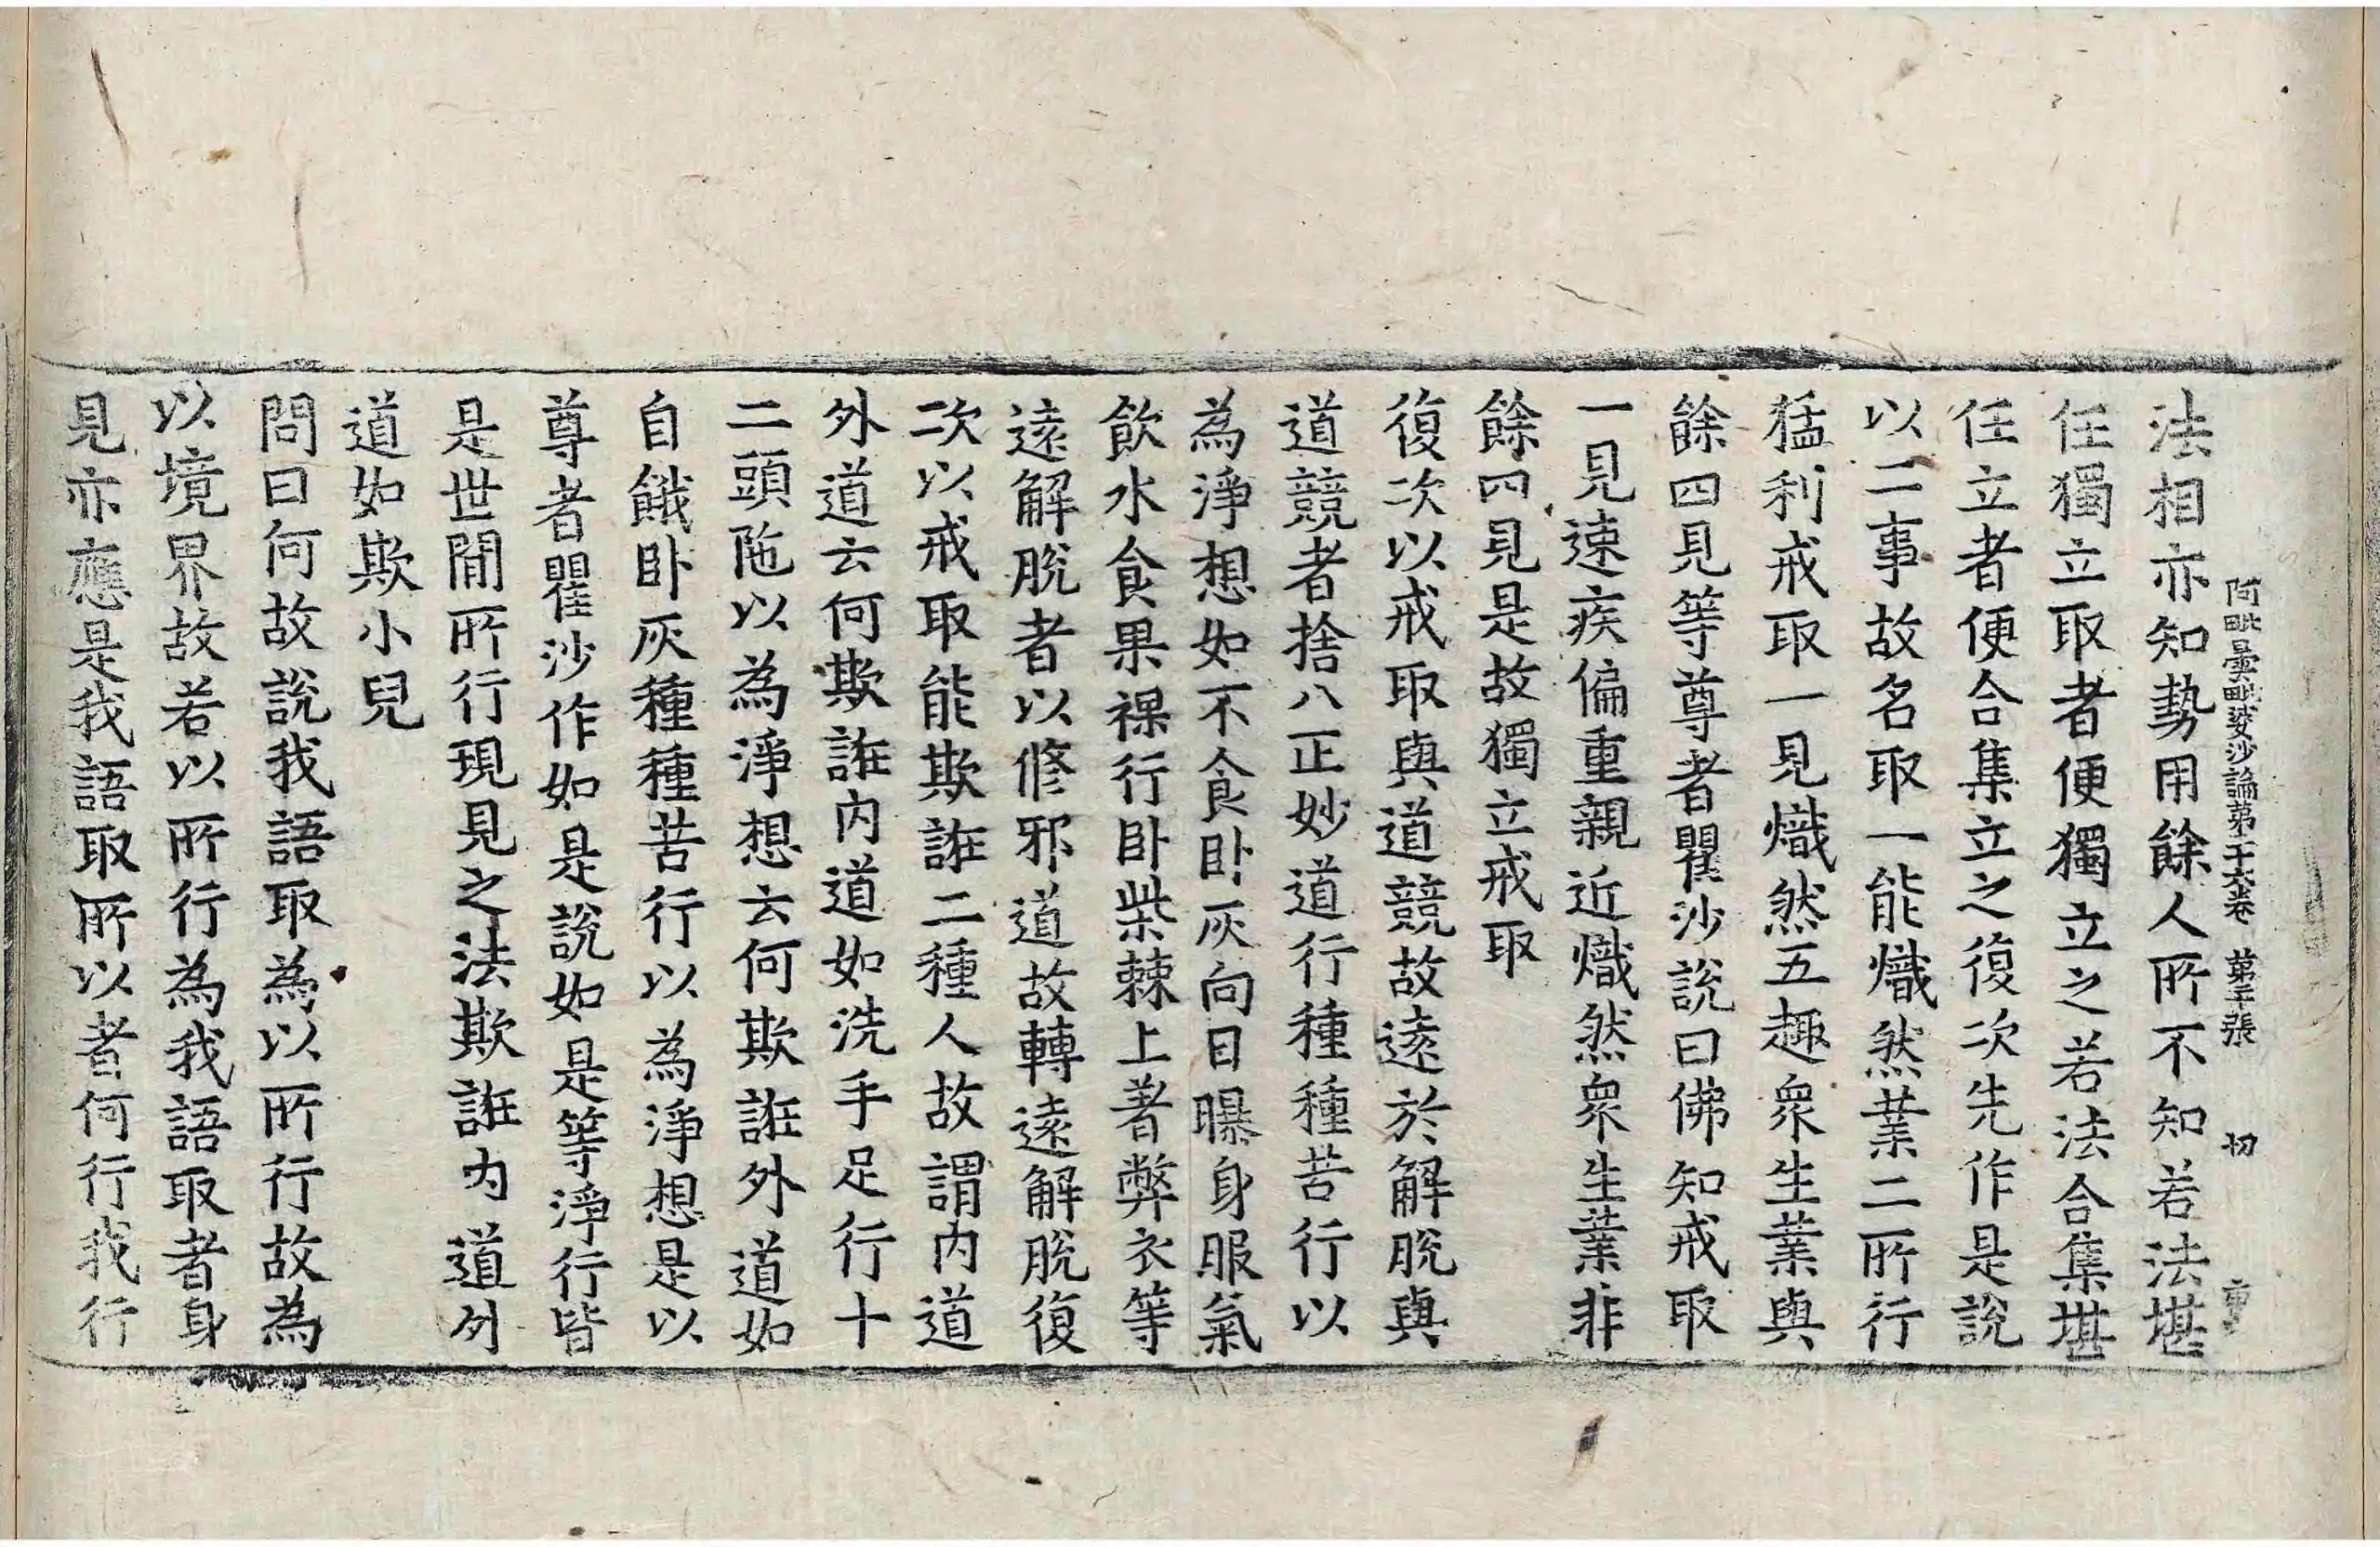 阿毗曇毗婆沙論第二十六卷　第二十張　切
法相亦知勢用餘人所不知若法堪
任獨立取者便獨立之若法合集堪
任立者便合集立之復次先作是說
以二事故名取一能熾然業二所行
猛利戒取一見熾然五趣衆生業與
餘四見等尊者瞿沙說曰佛知戒取
一見速疾偏重親近熾然衆生業非
餘四見是故獨立戒取
復次以戒取與道競故遠於解脫與
道競者捨八正妙道行種種苦行以
為淨想如不食卧灰向日曝身服氣
飲水食果裸行卧柴棘上著弊衣等
遠解脫者以修邪道故轉遠解脫復
次以戒取能欺誑二種人故謂內道
外道云何欺誑內道如洗手足行十
二頭陁以為淨想云何欺誑外道如
自餓卧灰種種苦行以為淨想是以
尊者瞿沙作如是說如是等淨行皆
是世間所行現見之法欺誑內道外
道如欺小兒
問曰何故說我語取為以所行故為
以境界故若以所行為我語取者身
見亦應是我語取所以者何行我行